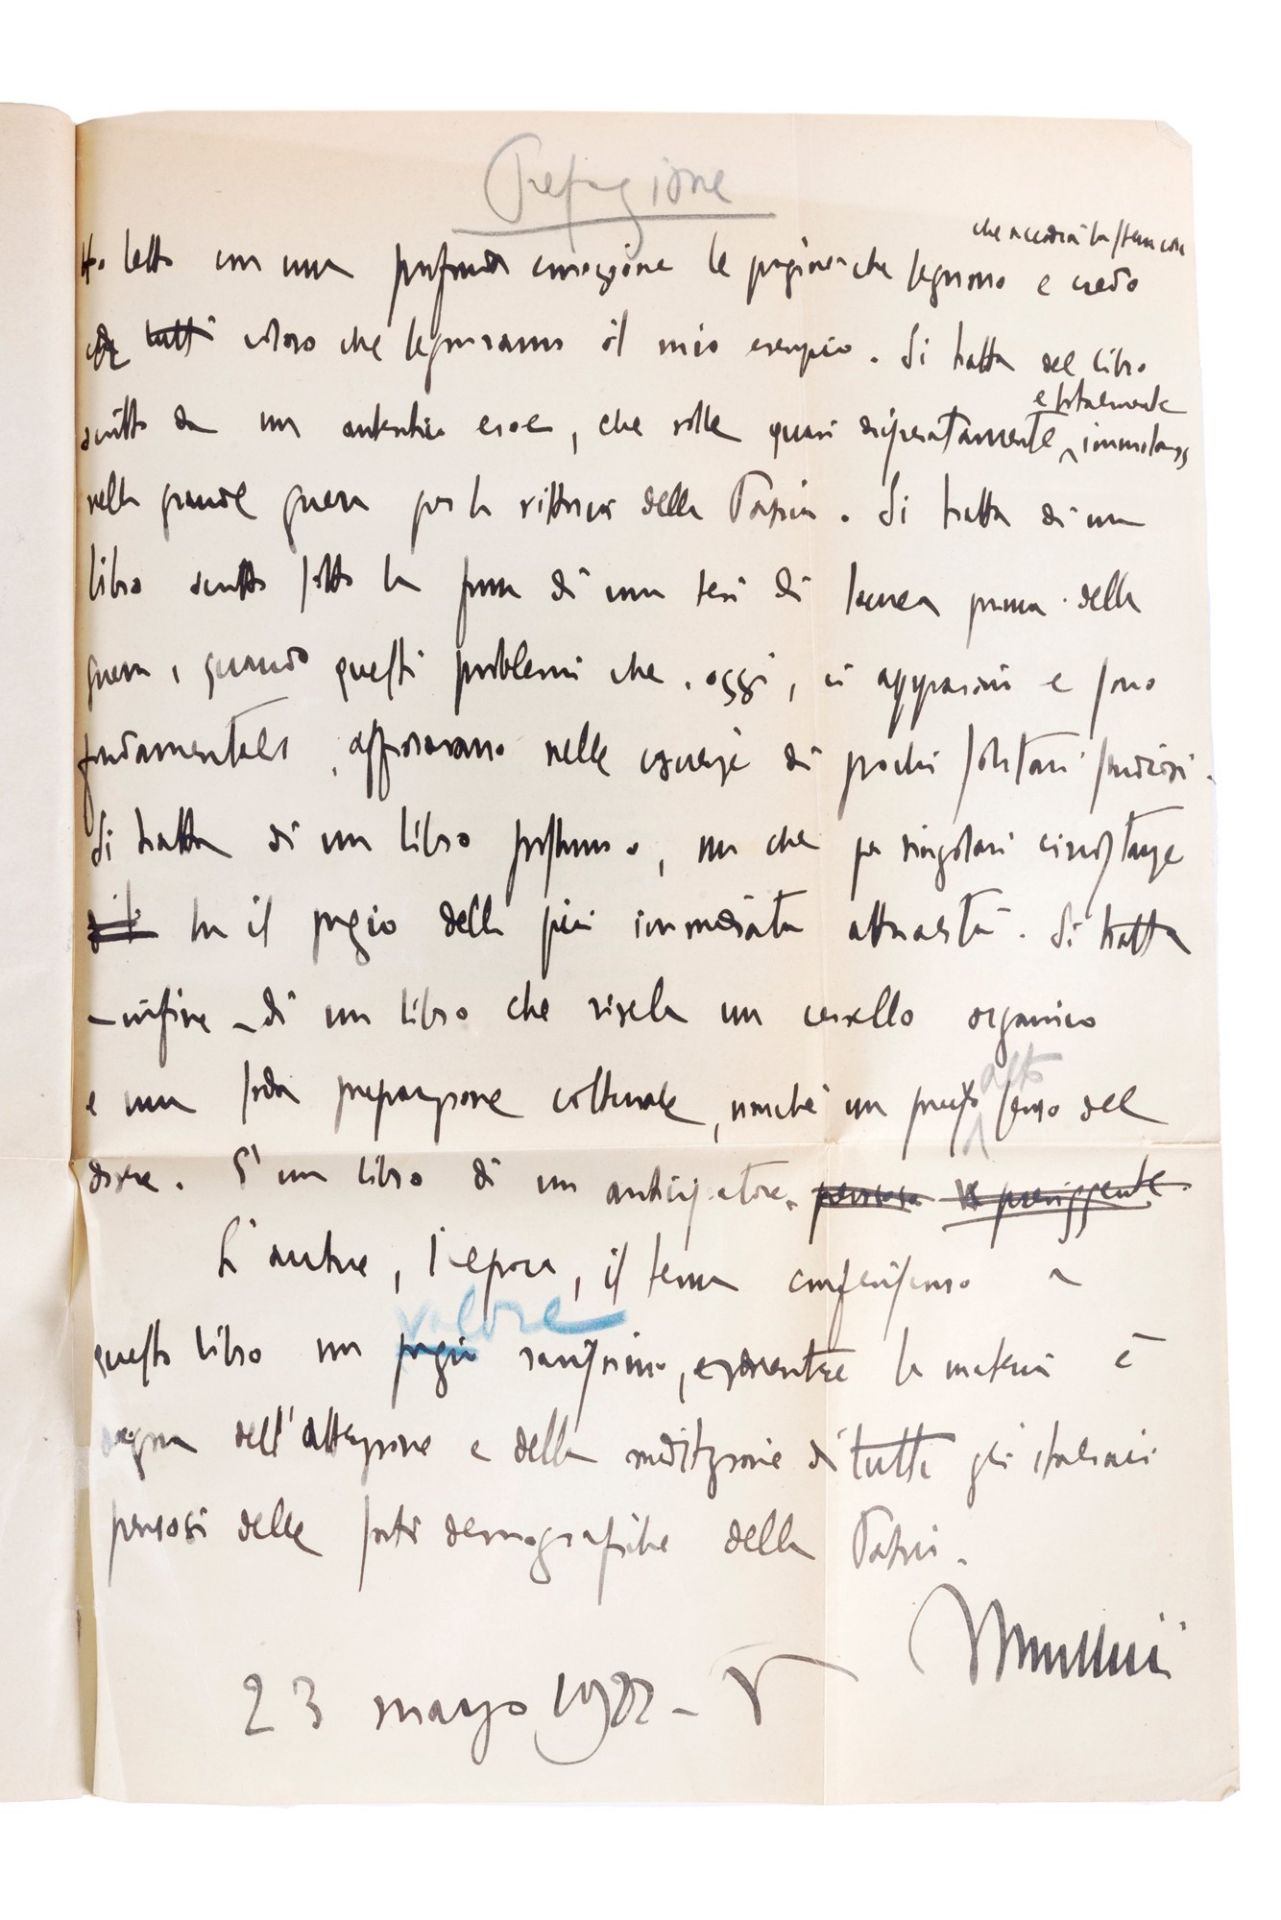 Prefazione
che accadrà la stessa cosa
Ho letto con una profonda emozione le pagine che seguono e credo
che tutti coloro che seguiranno il mio esempio. Si tratta del libro
e totalmente
scritto da un autentico eroe, che volle quasi disperatamente immolarsi
nella grande guerra per la vittoria della Patria. Si tratta di un
libro scritto sotto la forma di una tesi di laurea prima della
guerra, quando questi problemi che, oggi, ci appassionano e sono
fondamentali, affioravano nelle coscienze di pochi solitari studiosi.
Si tratta di un libro postumo, ma che per singolari circostanze
ha il pregio della più immediata attualità. Si tratta
- infine - di un libro che rivela un cervello organico
alto
e una soda preparazione culturale, nonché un preciso senso del
dovere. È un libro di un anticipatore. pensoso preveggente.
L'autore, l'epoca, il tema conferiscono a
valore
questo libro un pregio rarissimo, mentre la materia è
degna dell'attenzione e della meditazione di tutti gli italiani
pensosi delle sorti demografiche della Patria.
Mussolini
23 marzo 1927 - V